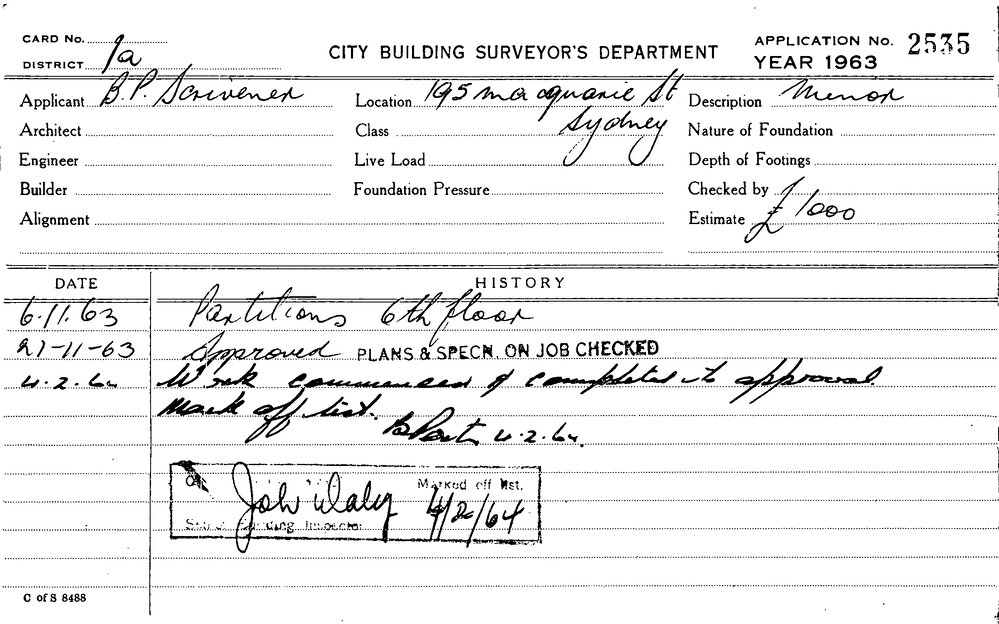 CARD No.
DISTRICT 9a
CITY BUILDING SURVEYOR'S DEPARTMENT
APPLICATION No. 2535
YEAR 1963
Applicant B.P. Scrivener
Location 195 macquarie St
Sydney
Description Minor
Architect
Class
Nature of Foundation
Engineer
Live Load
Depth of Footings
Builder
Foundation Pressure
Checked by
Alignment
Estimate £1000
DATE HISTORY
6.11.63 Partitions 6th floor
27-11-63 Approved PLANS & SPECN. ON JOB CHECKED
4.2.64 Work commenced & completed to approval.
Mark off list.
4.2.64.
John Daley Marked off list.
Building Inspector 4/2/64
C of S 8488